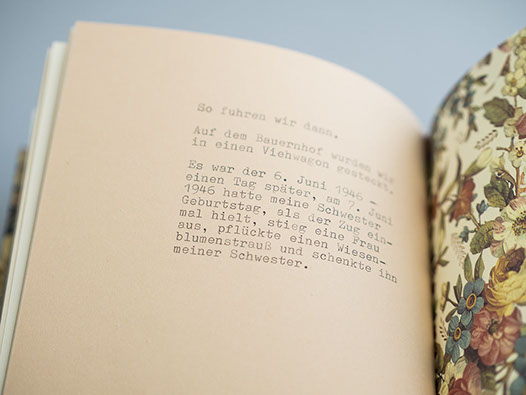 So fuhren wir dann.
Auf dem Bauernhof wurden wir
in einen Viehwagon gesteckt.
Es war der 6. Juni 1946 –
einen Tag später, am 7. Juni
1946 hatte meine Schwester
Geburtstag, als der Zug ein-
mal hielt, stieg eine Frau
aus, pflückte einen Wiesen-
blumenstrauß und schenkte ihn
meiner Schwester.